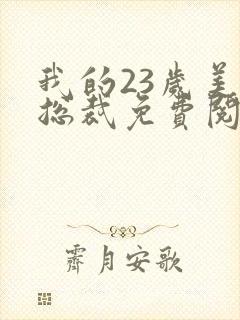 我的23岁美
总裁免费阅
霁月安歌